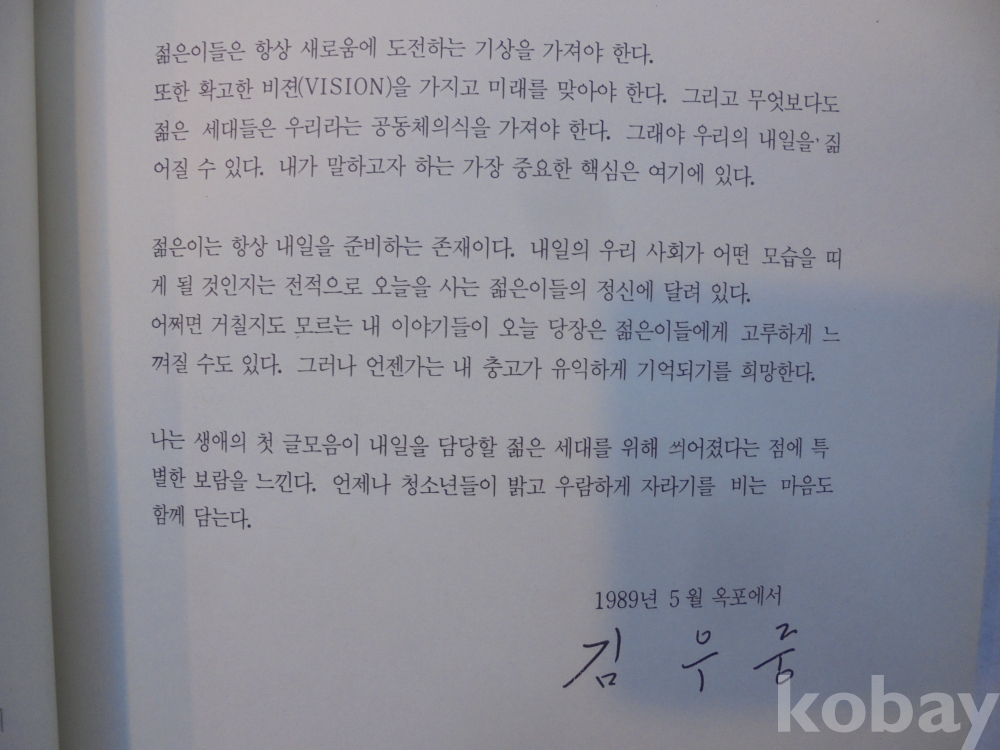 젊은이들은 항상 새로움에 도전하는 기상을 가져야 한다.
또한 확고한 비젼(VISION)을 가지고 미래를 맞아야 한다. 그리고 무엇보다도
젊은 세대들은 우리라는 공동체의식을 가져야 한다. 그래야 우리의 내일을 짊
어질 수 있다. 내가 말하고자 하는 가장 중요한 핵심은 여기에 있다.
젊은이는 항상 내일을 준비하는 존재이다. 내일의 우리 사회가 어떤 모습을 띠
게 될 것인지는 전적으로 오늘을 사는 젊은이들의 정신에 달려 있다.
어쩌면 거칠지도 모르는 내 이야기들이 오늘 당장은 젊은이들에게 고루하게 느
껴질 수도 있다. 그러나 언젠가는 내 충고가 유익하게 기억되기를 희망한다.
나는 생애의 첫 글모음이 내일을 담당할 젊은 세대를 위해 씌어졌다는 점에 특
별한 보람을 느낀다. 언제나 청소년들이 밝고 우람하게 자라기를 비는 마음도
함께 담는다.
1989년 5월 옥포에서
김 우 중
kobay